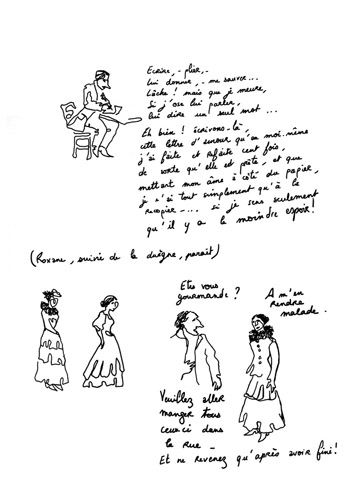 Ecrire, - plier, -
Lui donner, - me sauver...
Lâche ! mais que je meure,
Si j'ose lui parler,
Lui dire un seul mot...
Eh bien ! écrivons-là,
cette lettre d'amour qu'en moi-même
j'ai faite et refaite cent fois,
de sorte qu'elle est prête, et que
mettant mon âme à côté du papier,
je n'ai tout simplement qu'à la
recopier .... si je sens seulement
qu'il y a le moindre espoir !
(Roxane, suivie de la duègne, paraît)
Etes vous
gourmande ?
A m'en
rendre
malade.
Veuillez aller
manger tous
ceux-ci dans
la rue -
Et ne revenez qu'après avoir fini !